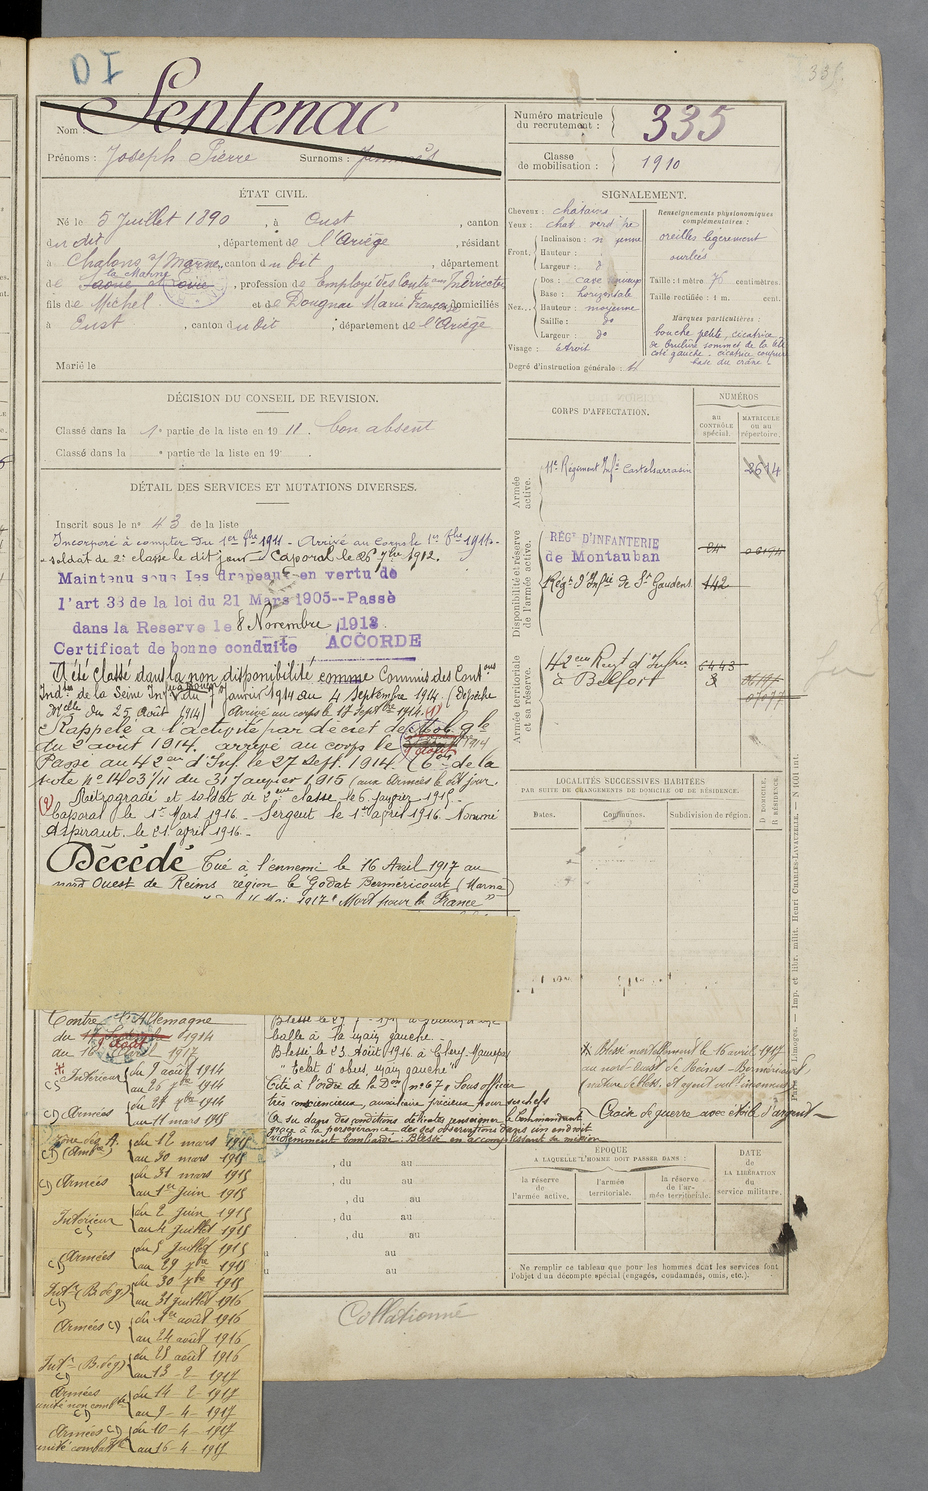 DI
335
Nom : Sentenac
Prénoms : Joseph Pierre Surnoms :
Numéro matricule du recrutement : 335
Classe de mobilisation : 1910
ÉTAT CIVIL.
Né le 5 Juillet 1890, à Oust, canton
du dit, département de l'Ariège, résidant
à Chalons s/ Marne, canton du Dit, département
de la Marne, profession de Employé des Contr ons Indirectes
fils de Michel et de Dougnac Marie Françoise domiciliés
à Oust, canton du Dit, département de l'Ariège
Marié le
SIGNALEMENT.
Cheveux : chatains
Yeux : chat verd
Front. Inclinaison :
Hauteur :
Largeur :
Nez. Dos : cave
Base : horizontale
Hauteur : moyenne
Saillie : do
Largeur : do
Visage : étroit
Degré d'instruction générale :
Renseignements physionomiques complémentaires :
oreilles légèrement
ourlées
Taille : 1 mètre 76 centimètres.
Taille rectifiée : 1 m. cent.
Marques particulières :
bouche petite, cicatrice
de brulure sommet de la tête
coté gauche - cicatrice coupure
base du crâne
DÉCISION DU CONSEIL DE REVISION.
Classé dans la 1e partie de la liste en 1911. bon absent
Classé dans la e partie de la liste en 19 .
DÉTAIL DES SERVICES ET MUTATIONS DIVERSES.
Inscrit sous le no 43 de la liste
Incorporé à compter du 1er 8bre 1911 - Arrivé au Corps le 1er 8bre 1911 -
soldat de 2e classe le dit jour Caporal le 26 7bre 1912.
Maintenu sous les drapeaux en vertu de
l'art 33 de la loi du 21 Mars 1905--Passé
dans la Reserve le 8 Novembre 1913
Certificat de bonne conduite ACCORDÉ
A été classé dans la non disponibilité comme Commis des Cont ons
Ind tes de la Seine Inf du Janvier 1914 au 4 Septembre 1914. (Dépêche
M elle du 25 Août 1914) Arrivé au corps le 17 Septbre 1914. (1)
Rappelé à l'activité par décret de Mob. gle
du 2 août 1914. arrivé au corps le 9 août 1914
Passé au 42 em d'Inf. le 27 sept. 1914. de la
note no 1403/11 du 31 Janvier 1915 (aux Armées le dit jour.
(2) Rétrogradé et soldat de 2 eme classe le 6 janvier 1915 -
Caporal le 1er Mars 1916 - Sergent le 1er avril 1916 Nommé
Aspirant le 21 avril 1916 -
Décédé Tué à l'ennemi le 16 Avril 1917 au
nord Ouest de Reims région le Godat Berméricourt (Marne)
16 Mai 1917 "Mort pour la France"
CORPS D'AFFECTATION.
NUMÉROS
au CONTRÔLE spécial.
MATRICULE ou au répertoire.
Armée active.
11e Régiment Infie Castelsarrasin 2614
Disponibilité et réserve de l'armée active.
RÉGt D'INFANTERIE
de Montauban
Régt d'Infie de St Gaudens 142
Armée territoriale et sa réserve.
42 em Regt d'Infrie 6443
à Belfort
LOCALITÉS SUCCESSIVES HABITÉES
PAR SUITE DE CHANGEMENTS DE DOMICILE OU DE RÉSIDENCE.
Dates. Communes. Subdivision de région. D. DOMICILE. R. RÉSIDENCE.
Contre l'Allemagne
du 9 Août 1914
au 16 avril 1917
Intérieur du 9 août 1914
au 26 7bre 1914
C) Armées du 27 7bre 1914
au 11 mars 1915
Zone des A. du 12 mars 1915
C) au 30 mars 1915
C) Armées du 31 mars 1915
au 1er Juin 1915
Intérieur C) du 2 Juin 1915
au 4 Juillet 1915
C) Armées du 5 Juillet 1915
au 29 7bre 1915
Intr (B. de g) C) du 30 7bre 1915
au 31 juillet 1916
Armées C) du 1er août 1916
au 24 août 1916
Intr (B. de g) C) du 25 août 1916
au 13 - 2 - 1917
Armées unité non combte C) du 14 - 2 - 1917
au 9 - 4 - 1917
Armées C) unité combatte du 10 - 4 - 1917
au 16 - 4 - 1917
balle à la main gauche.
Blessé le 23 Août 1916 à Cléry-Maurepas
"Eclat d'obus main gauche"
Cité à l'ordre de la Don no 67, Sous officier
très consciencieux, auxiliaire précieux pour ses chefs
a su dans des conditions délicates renseigner le Commandant
grâce à la persévérance de ses observations dans un endroit
évidemment bombardé : Blessé en accomplissant sa mission
* Blessé mortellement le 16 avril 1917
au nord-Ouest de Reims Berméricourt
Croix de guerre avec étoile d'argent -
, du au
, du au
, du au
, du au
, du au
au
au
ÉPOQUE
A LAQUELLE L'HOMME DOIT PASSER DANS :
la réserve de l'armée active.
l'armée territoriale.
la réserve de l'armée territoriale.
DATE de LA LIBÉRATION du service militaire.
Ne remplir ce tableau que pour les hommes dont les services font
l'objet d'un décompte spécial (engagés, condamnés, omis, etc.).
Collationné
Paris et Limoges. — Imp. et libr. milit. Henri CHARLES-LAVAUZELLE. — N 1401 int.